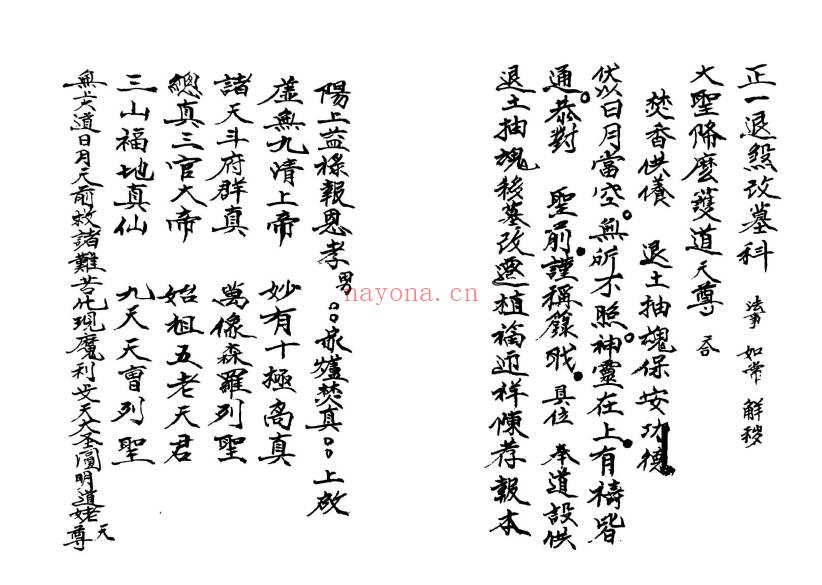 正一退煞改墓科 法事 如常 解穢
大聖降魔護道天尊 吞
焚香供養 退土抽魂保安功德
伏以日月當空無所不照神靈在上有禱皆
通恭對 聖前謹稱籙職 具位 奉道設供
退土抽魂移墓改遷植福迎祥悚荐報本
陽上益祿報恩孝男 家爐焚真 上啟
虛無九清上帝 妙有十極高真
諸天斗府群真 萬像森羅列聖
總真三官大帝 始祖五老天君
三山福地真仙 九天天曹列聖
無大道日月天前救諸難苦化現魔利攴天大圣圓明道姥天尊
nayona.cn